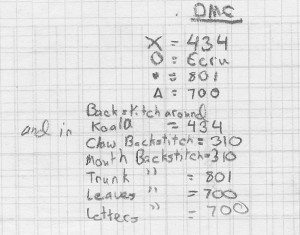 DMC
X = 434
O = Ecru
• = 801
Δ = 700
Backstitch around
and in Koala = 434
Claw Backstitch = 310
Mouth Backstitch = 310
Trunk " = 801
Leaves " = 700
Letters " = 700